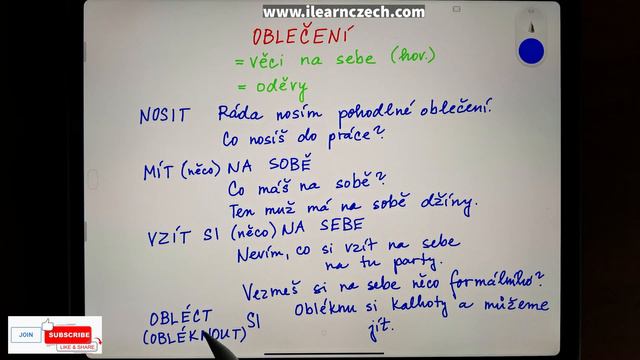 www.ilearnczech.com
OBLEČENÍ
= věci na sebe (hov.)
= oděvy
NOSIT Ráda nosím pohodlné oblečení.
Co nosíš do práce?
MÍT (něco) NA SOBĚ
Co máš na sobě?
Ten muž má na sobě džíny.
VZÍT SI (něco) NA SEBE
Nevím, co si vzít na sebe
na tu party.
Vezmeš si na sebe něco formálního?
OBLÉCT SI Obléknu si kalhoty a můžeme
(OBLÉKNOUT) jít.
JOIN SUBSCRIBE